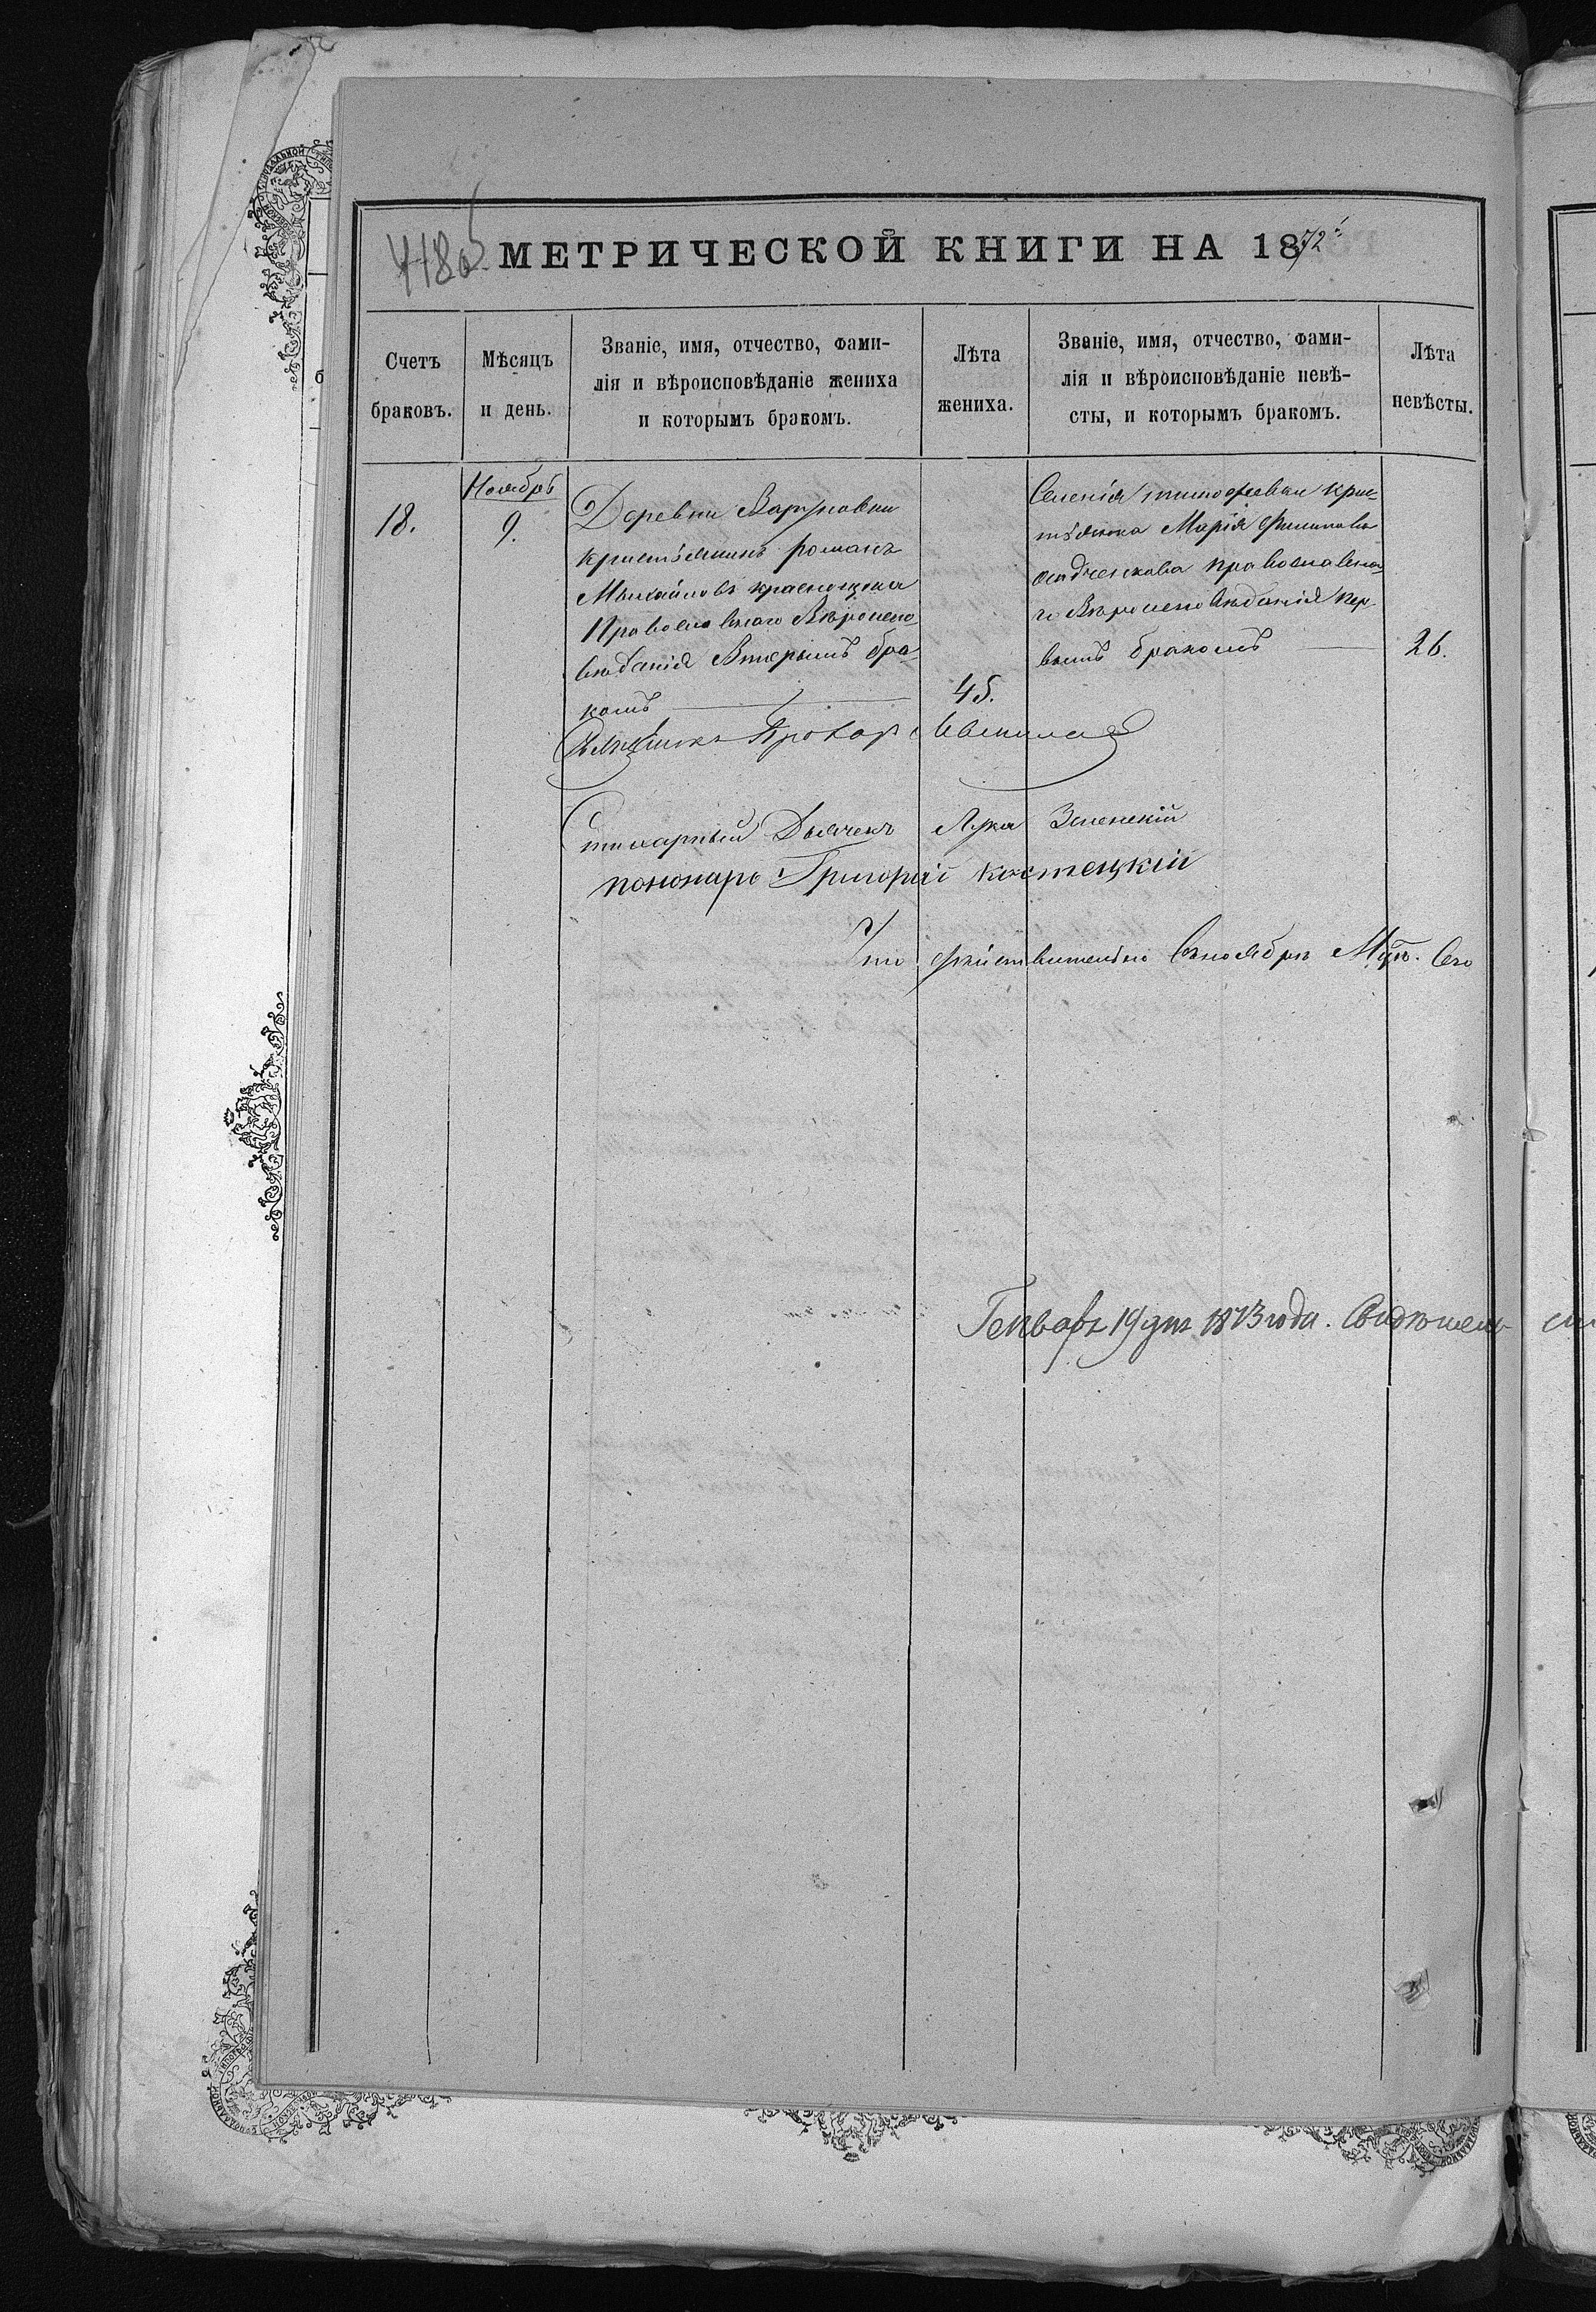 418об
МЕТРИЧЕСКОЙ КНИГИ НА 1872й
Счетъ браковъ.
Мѣсяцъ и день.
Званіе, имя, отчество, фами-
лія и вѣроисповѣданіе жениха
и которымъ бракомъ.
Лѣта жениха.
Званіе, имя, отчество, фами-
лія и вѣроисповѣданіе невѣ-
сты, и которымъ бракомъ.
Лѣта невѣсты.
18.
Ноябрь
9.
Деревни Варуновки
крестьянинъ романъ
Михайловъ краснощока
Православнаго Вѣроиспо
вѣданія Вторымъ бра-
комъ
45.
Селенія тимофеевки крес-
тьянка Марія Филипова
православна-
го Вѣроисповѣданія пер-
вымъ бракомъ
26.
Священникъ Прохоръ
Стихарный Дьячекъ Лука Зеленскій
пономарь Григорій Костецкій
Что дѣйствительно въ ноябрѣ Мцѣ. Сего
Генварь 19 дня 1873 года. Свидѣтель